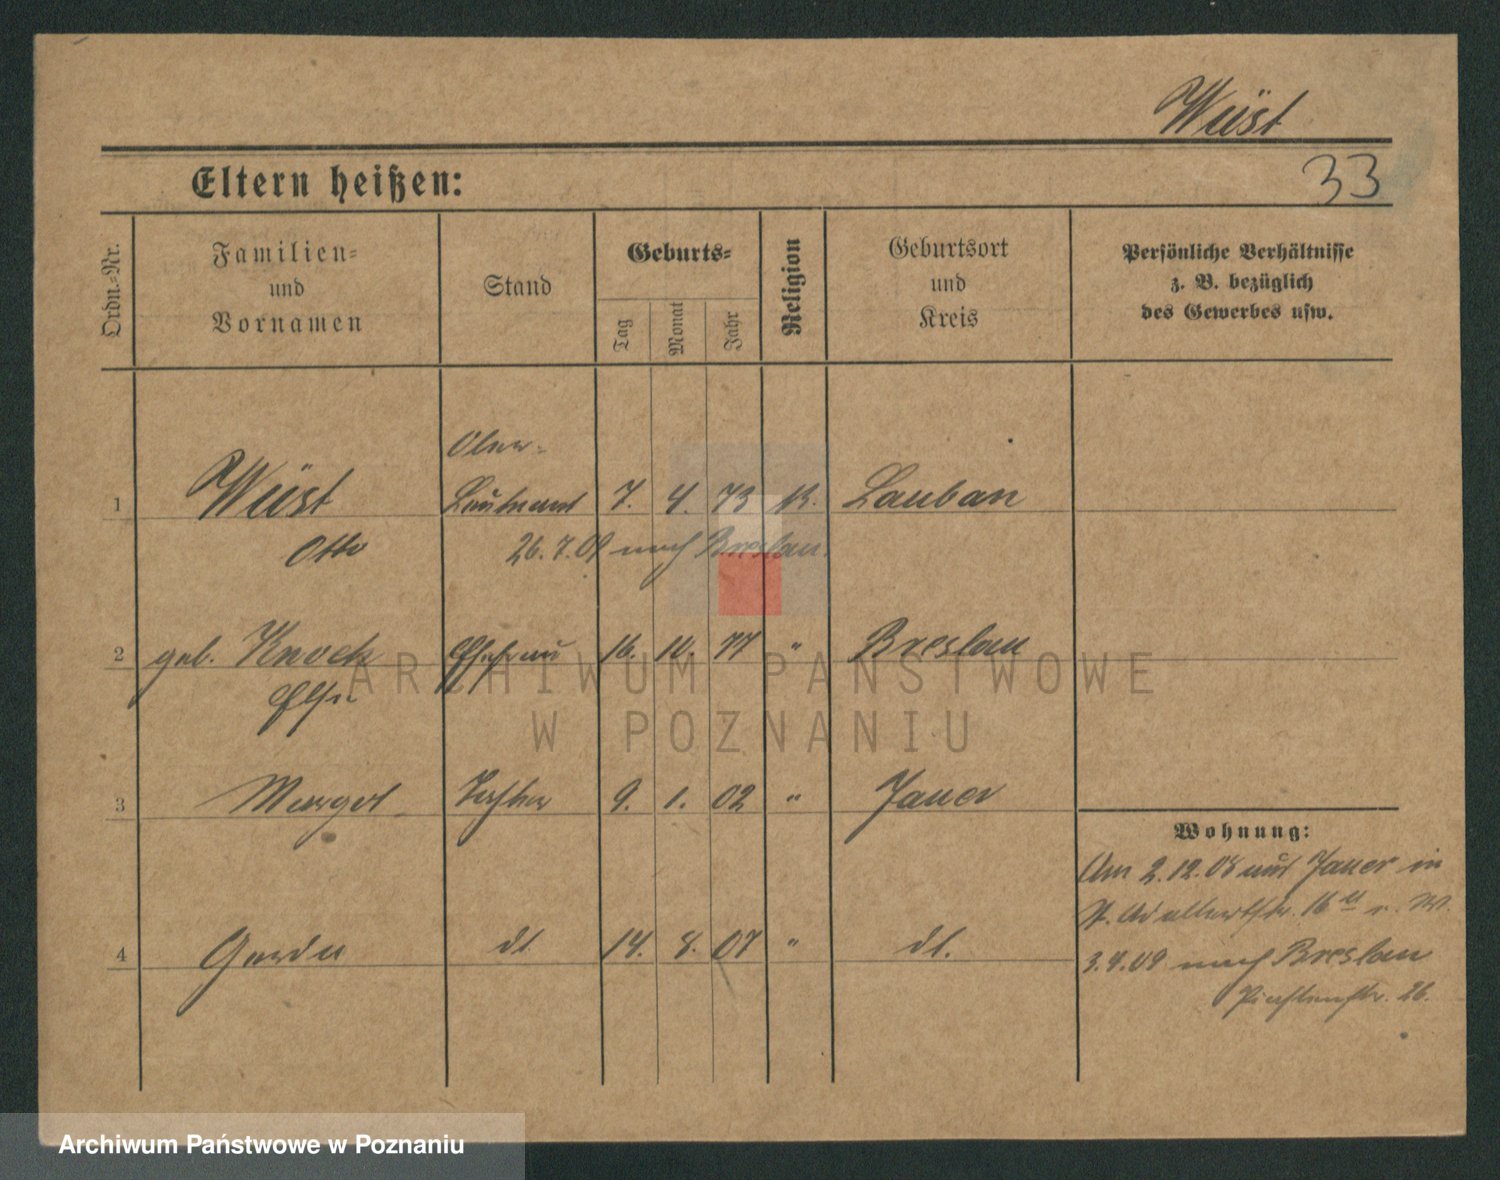 Wüst
33
Eltern heißen:
Ordn.-Nr.
Familien-
und
Vornamen
Stand
Geburts-
Tag
Monat
Jahr
Religion
Geburtsort
und
Kreis
Persönliche Verhältnisse
z. B. bezüglich
des Gewerbes usw.
Ober-
1 Wüst Leutnant 7. 4. 73 K. Lauban
Otto 26.7.09 nach Breslau.
2 geb. Knoch Ehefrau 16. 10. 77 " Breslau
Else
3 Margot Tochter 9. 1. 02 " Jauer
Wohnung:
Am 2.12.08 aus Jauer in
St. Adalbertstr. 16
4 Gerda dt. 14. 8. 07 " dt.
3.7.09 nach Breslau
Piastenstr. 26.
ARCHIWUM PAŃSTWOWE
W POZNANIU
Archiwum Państwowe w Poznaniu